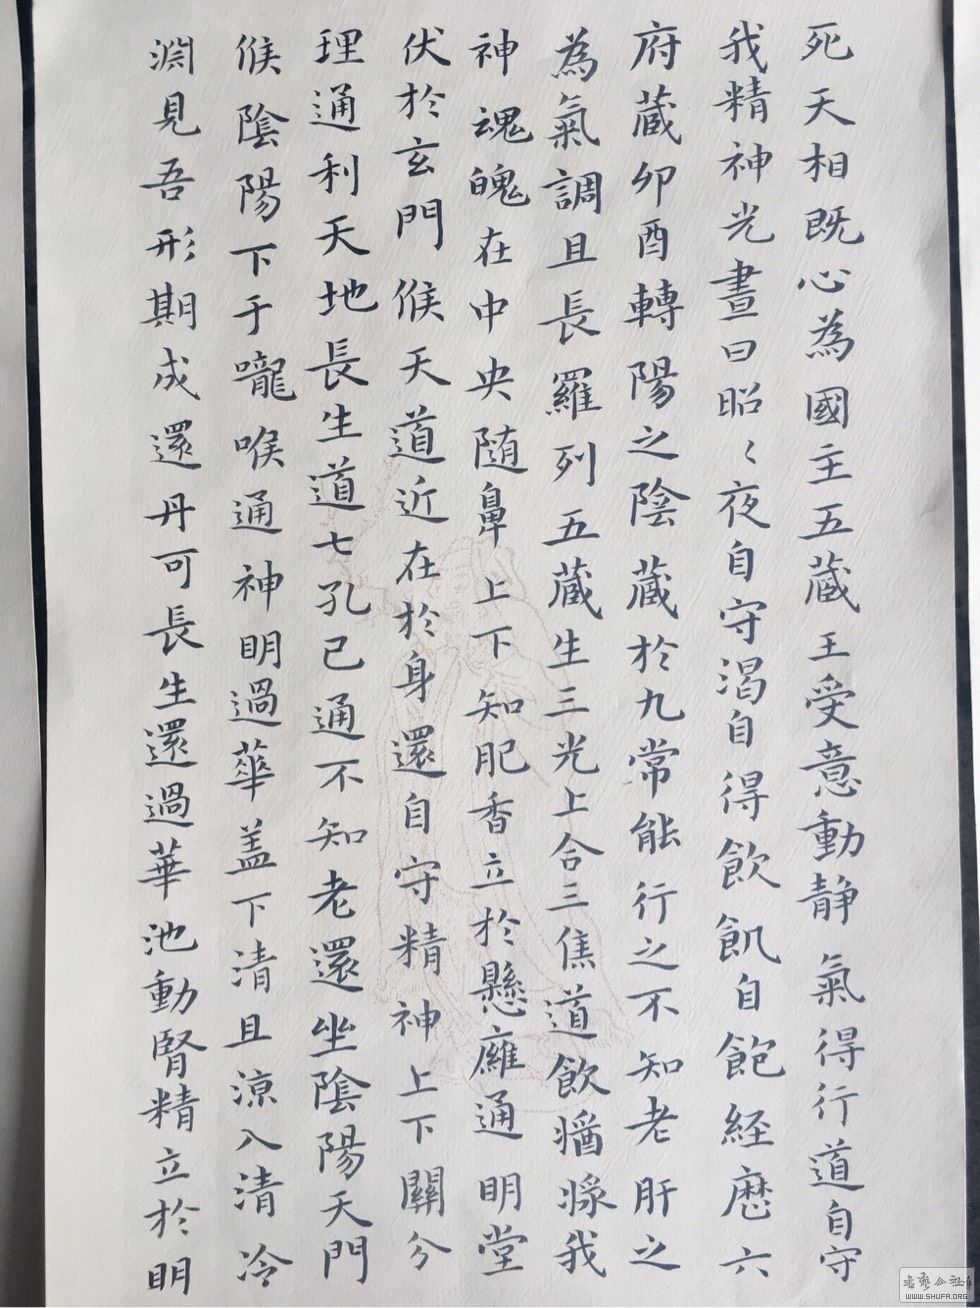 死天相既心為國主五蔵王受意動静氣得行道自守
我精神光晝曰昭〻夜自守渴自得飲飢自飽経歴六
府蔵卯酉轉陽之陰蔵於九常能行之不知老肝之
為氣調且長羅列五蔵生三光上合三焦道飲
神魂魄在中央随鼻上下知肥香立於懸廱通明堂
伏於玄門候天道近在於身還自守精神上下關分
理通利天地長生道七孔已通不知老還坐陰陽天門
候陰陽下于嚨喉通神明過華盖下清且涼入清冷
淵見吾形期成還丹可長生還過華池動腎精立於明
書藝公社
WWW.SHUFA.ORG